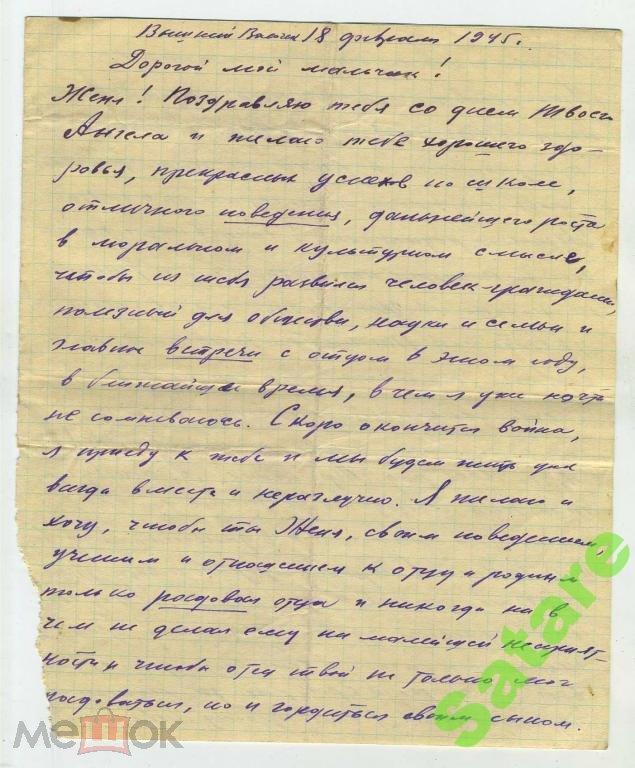 Вышний Волочек 18 февраля 1945 г.
Дорогой мой мальчик!
Женя! Поздравляю тебя со днем твоего
Ангела и желаю тебе хорошего здо-
ровья, прекрасных успехов по школе,
отличного поведения, дальнейшего роста
в моральном и культурном смысле,
чтобы из тебя развился человек-гражданин,
полезный для общества, науки и семьи и
главное встречи с отцом в этом году,
в ближайшее время, в чем я уже почти
не сомневаюсь. Скоро окончится война,
я приеду к тебе и мы будем жить уже
всегда вместе и неразлучно. Я желаю и
хочу, чтобы ты Женя, своим поведением,
учением и отношением к отцу и родным
только радовал отца и никогда ни в
чем не делал ему ни малейшей неприят-
ности и чтобы отец твой не только мог
радоваться, но и гордиться своим сыном.
Satare
МЕШОК